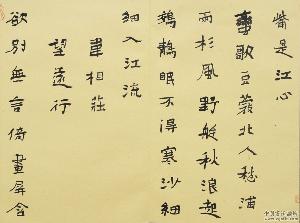 嘴是江心
蠻歌豆蔻北人愁浦
雨杉風野艇秋浪起
鵁鶄眠不得寒沙細
細入江流
韋相莊
望遠行
欲別無言倚畫屏含